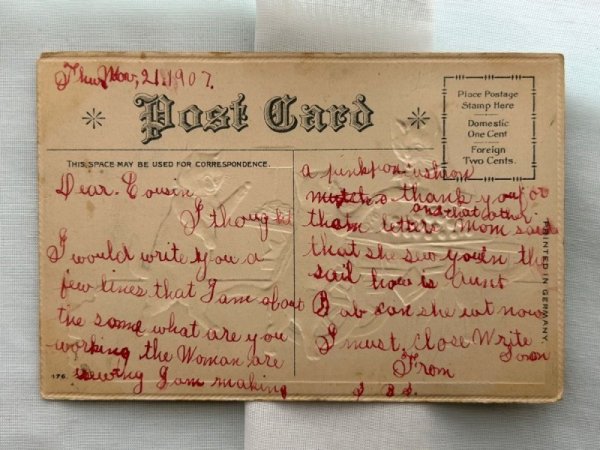 Thur Nov, 21. 1907.
Post Card
Place Postage
Stamp Here
Domestic
One Cent
Foreign
Two Cents.
THIS SPACE MAY BE USED FOR CORRESPONDENCE.
Dear. Cousin
I thought
I would write you a
few lines that I am about
the same what are you
working the Woman are
sewing I am making
a cushion
thank you for
and that other
them letters Mom said
that she sew you in the
sail how is Aunt
Bab can she eat now
I must close Write
soon
From
I B S.
PRINTED IN GERMANY.
176.